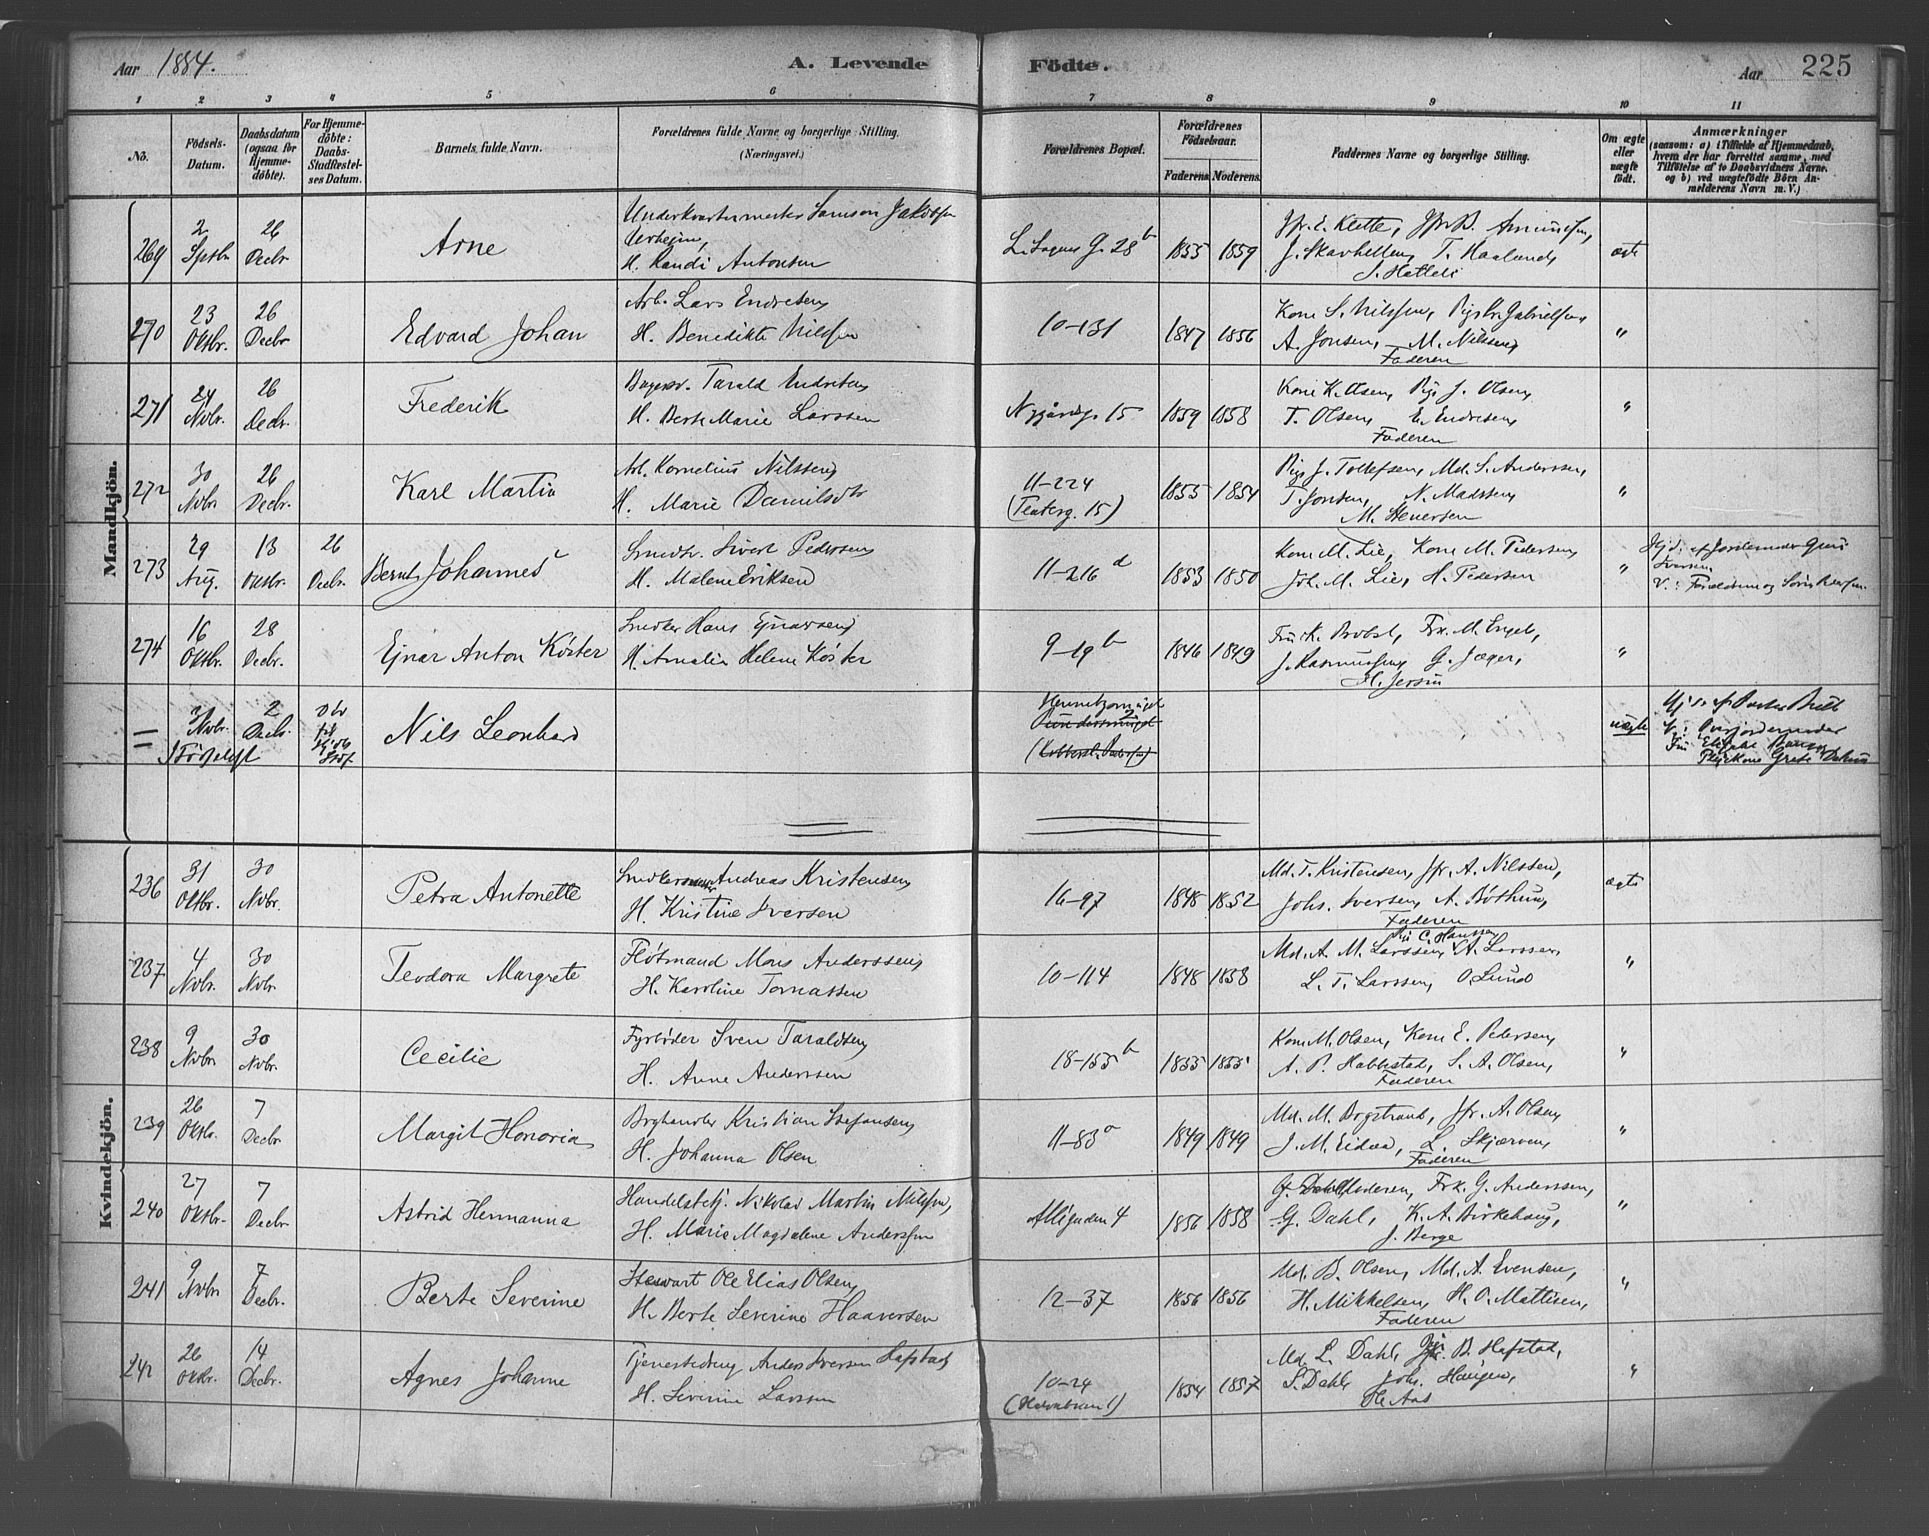 Aar 1884.
A. Levende Födte.
Aar 225
1 2 3 4 5 6 7 8 9 10 11
No.
Födsels-Datum.
Daabsdatum (ogsaa for Hjemmedöbte).
For Hjemmedöbte: Daabs-Stadfestelses Datum.
Barnets fulde Navn.
Forældrenes fulde Navne og borgerlige Stilling. (Næringsvei.)
Forældrenes Bopæl.
Forældrenes Födselsaar.
Faderens Moderens
Faddernes Navne og borgerlige Stilling.
Om ægte eller uægte födt.
Anmærkninger
(saasom: a) i Tilfælde af Hjemmedaab, hvem der har forrettet samme, med Tilföielse af to Daabsvidners Navne. og b) ved uægtefödte Börn Anmelderens Navn m. V.)
Mandkjön.
269 2 Septbr 26 Decbr Arne
Underkvartermester Samson Jakobsen
H. Randi Antonsen
L. Sognsg. 28 b 1855 1859
J. Skarhellen, T. Haaland,
ægte
270 23 Oktbr. 26 Decbr Edvard Johan
Arb. Lars Endresen,
H. Benedikte Nilssen
10-131 1847 1856
Kone S. Nilssen, Pige Gabrielsen,
A. Jonsen, M. Nilssen,
Faderen
"
271 24 Nvbr. 26 Decbr. Frederik
Bagersv. Tarald Endresen,
H. Berte Marie Larssen
Nygårdsg. 15 1859 1858
Kone K. Olsen, Pige J. Olsen,
T. Olsen, E. Endresen,
Faderen
"
272 30 Nvbr 26 Decbr. Karl Martin
Arb. Kornelius Nilssen,
H. Marie Danielsdtr
11-224
(Teaterg. 15)
1855 1854
Pige J. Tollefsen, Md. S. Anderssen,
T. Jonsen, N. Madssen,
"
273 29 Aug. 13 Oktbr. 26 Decbr. Bernt Johannes
Smedsv. Sivert Pedersen,
H. Malene Eriksen
11-216 d 1853 1850
Kone M. Lie, Kone M. Pedersen,
Joh. M. Lie, H. Pedersen
"
274 16 Oktbr. 28 Decbr. Ejnar Anton Köster
Snedker Hans Ejnarsen,
H. Amalia Helene Köster
9-19 b 1846 1849
Fru K. Brobst, Frk. M. Engel,
J. Rasmussen, G. Jæger,
"
Nvbr. 2 Decbr. Nils Leonhard
uægte
Kvindekjön.
236 31 Oktbr. 30 Nvbr. Petra Antonette
Snedkersvend Andreas Kristensen,
H. Kristine Iversen
16-97 1848 1852
Md. T. Kristensen, Jfr. A. Nilssen,
Johs. Iversen, A. Bøthun,
Faderen
ægte
237 4 Nvbr. 30 Nvbr. Teodora Margrete
Fløtmand Mons Anderssen,
H. Karoline Tomassen
10-114 1848 1858
Pige C. Hanssen
Md. A. M. Larssen, A. Larssen,
L. T. Larssen, O. Lund
"
238 9 Nvbr 30 Nvbr. Cecilie
Fyrbøder Sven Taraldsen,
H. Anne Anderssen
18-155 b 1855 1855
Kone M. Olsen, Kone E. Pedersen,
A. P. Habbestad, S. A. Olsen,
Faderen
"
239 26 Oktbr. 7 Decbr Margit Honoria
Boghandler Kristian Stefansen,
H. Johanna Olsen
11-83 a 1849 1849
Md. M. Bogstrand, Jfr. A. Olsen,
J. M. Eidaa, L. Skjærven,
Faderen
"
240 27 Oktbr. 7 Decbr Astrid Hermanna
Handelsbetj. Nikolai Martin Nilssen,
H. Marie Magdalene Anderssen
Allégaden 4 1856 1858
Frk. G. Anderssen,
G. Dahl, K. A. Birkehaug,
J. Berge
"
241 9 Nvbr 7 Decbr. Berte Severine
Stewart Ole Elias Olsen,
H. Berte Severine Haaversen
12-37 1856 1856
Md. B. Olsen, Md. A. Evensen,
H. Mikkelsen, H. O. Mattisen,
Faderen
"
242 26 Oktbr. 14 Decbr. Agnes Johanne
Tjenestedreng Anders Iversen Hafstad,
H. Severine Larssen
10-24
1854 1857
Md. L. Dahl, B. Hafstad,
S. Dahl, Johs. Haugen,
Ole Aas
"